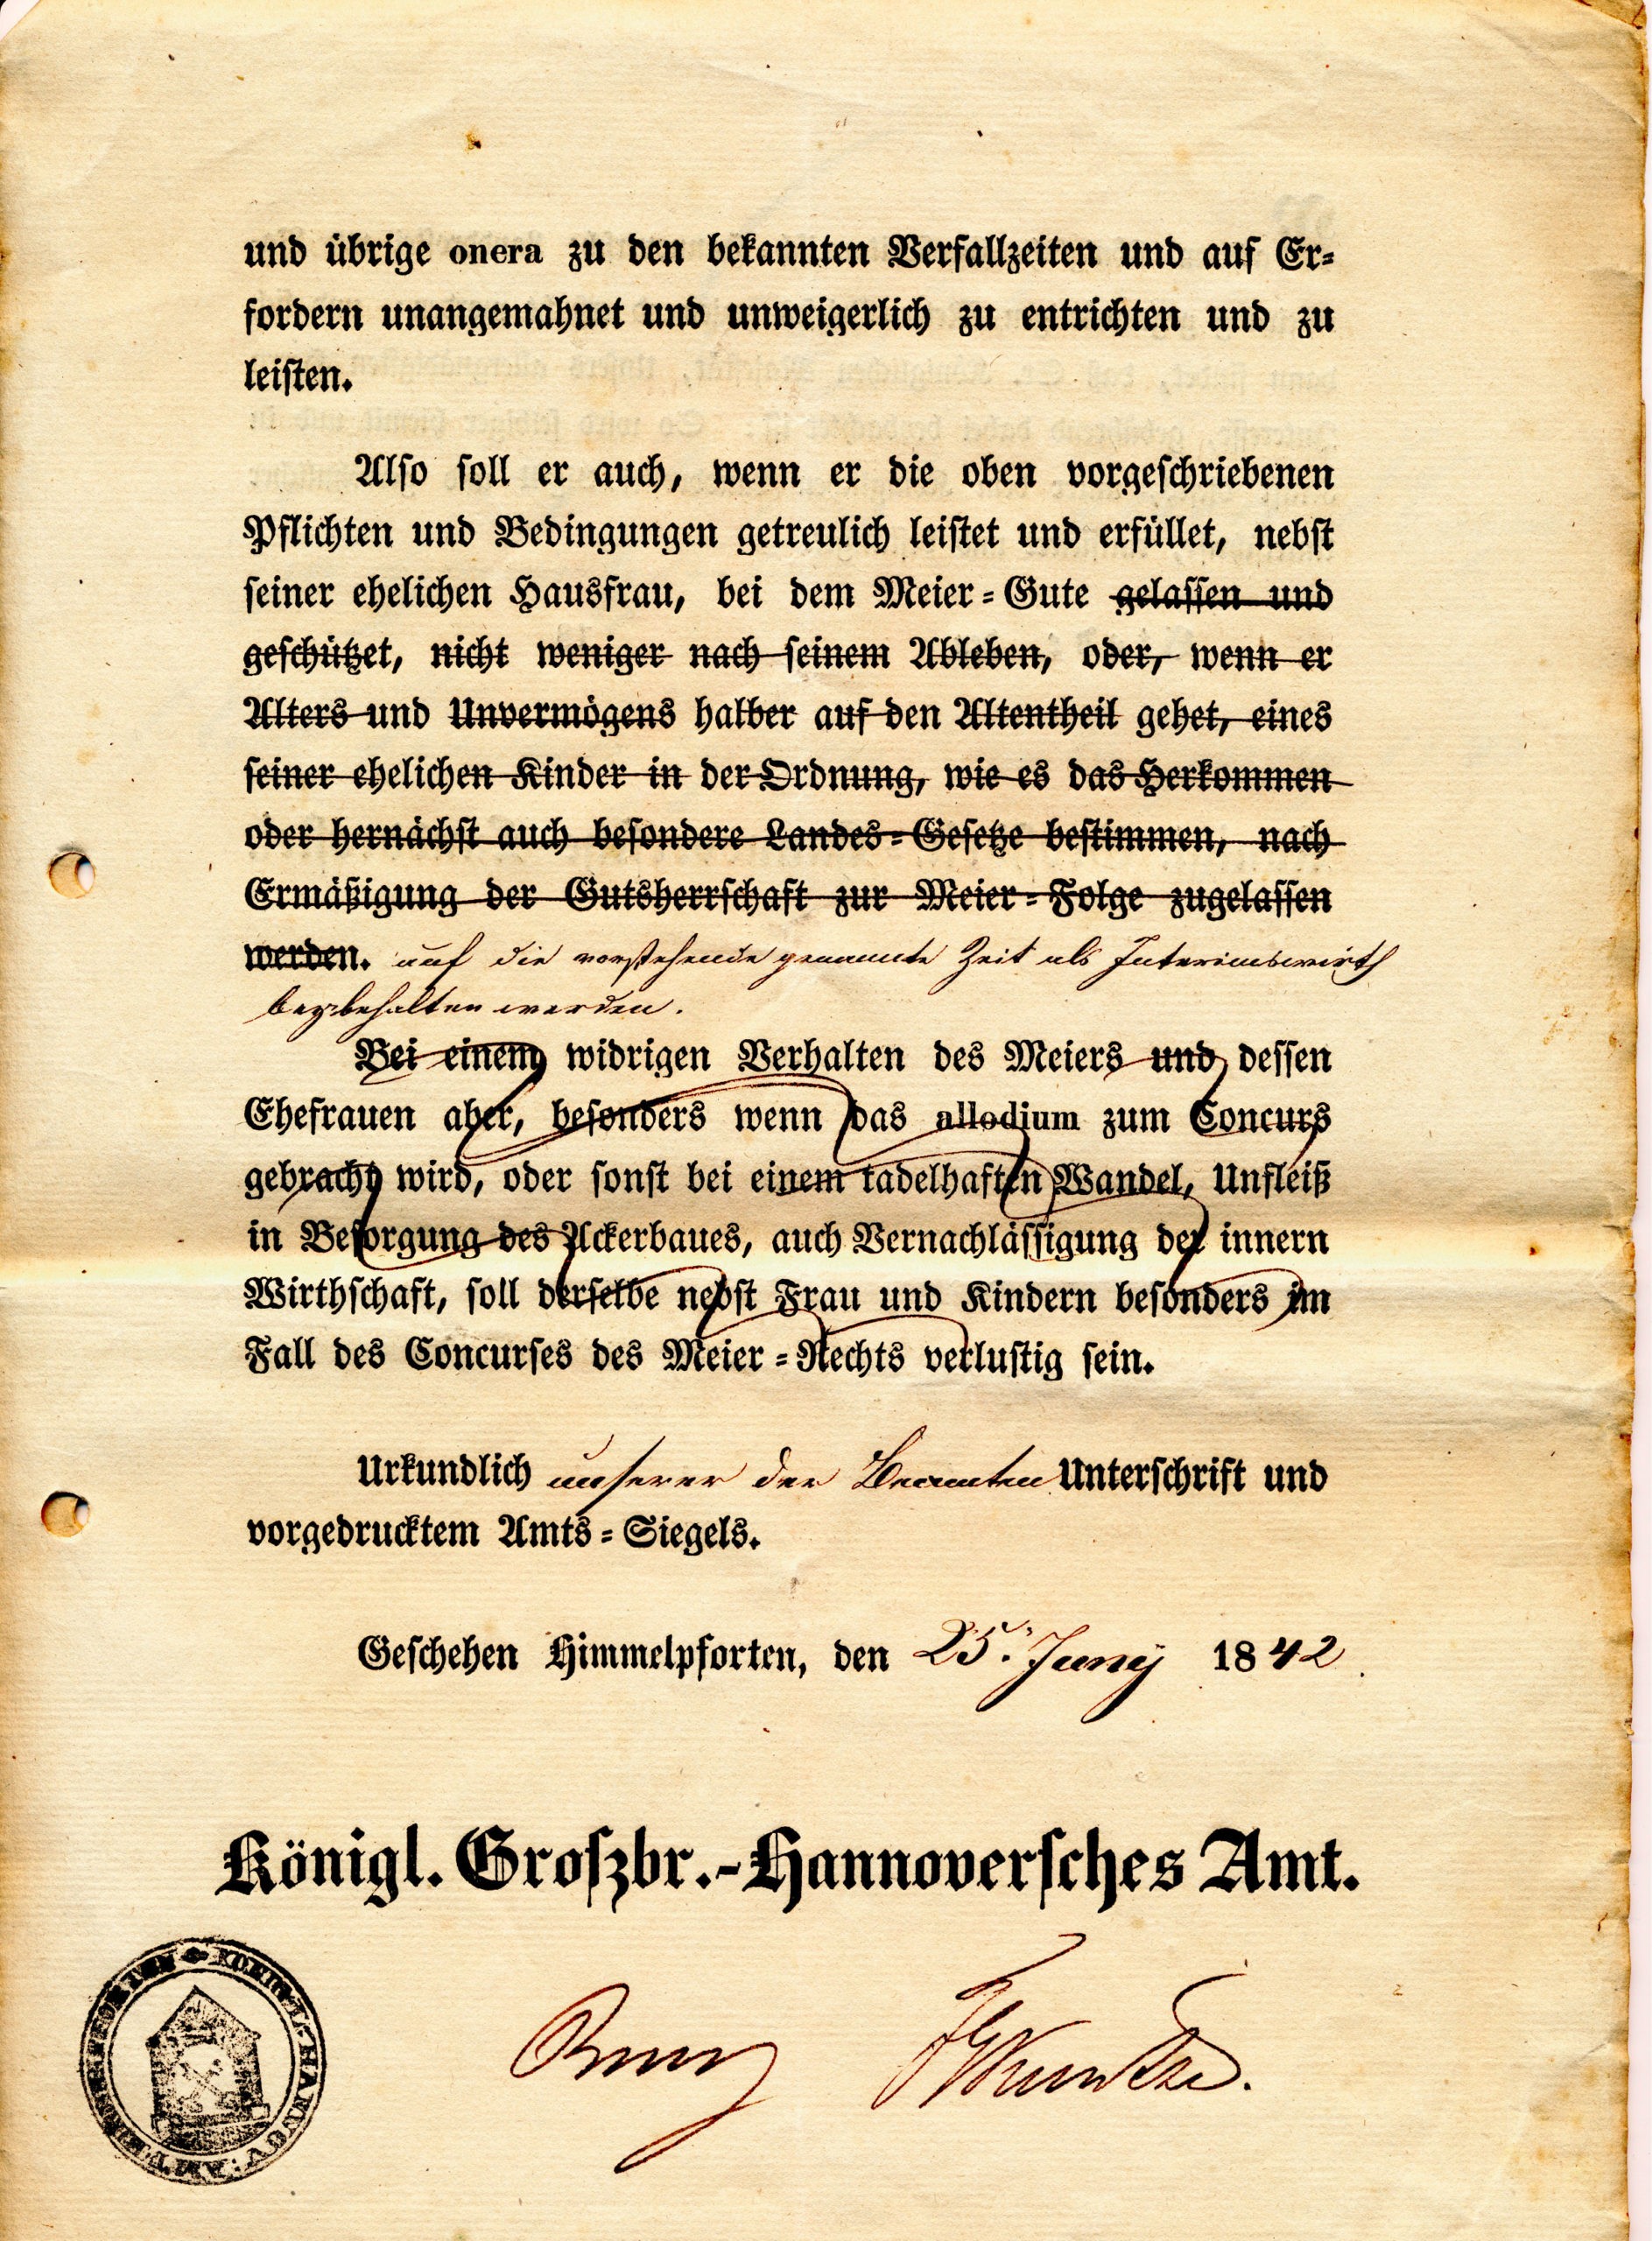 und übrige onera zu den bekannten Verfallzeiten und auf Er-
fordern unangemahnet und unweigerlich zu entrichten und zu
leisten.
Also soll er auch, wenn er die oben vorgeschriebenen
Pflichten und Bedingungen getreulich leistet und erfüllet, nebst
seiner ehelichen Hausfrau, bei dem Meier-Gute gelassen und
geschützet, nicht weniger nach seinem Ableben, oder, wenn er
Alters und Unvermögens halber auf den Altentheil gehet, eines
seiner ehelichen Kinder in der Ordnung, wie es das Herkommen
oder hernächst auch besondere Landes-Gesetze bestimmen, nach
Ermäßigung der Gutsherrschaft zur Meier-Folge zugelassen
werden. auf die vorstehende genannte Zeit als Interimswirth
beybehalten werden.
Bei einem widrigen Verhalten des Meiers und dessen
Ehefrauen aber, besonders wenn das allodium zum Concurs
gebracht wird, oder sonst bei einem tadelhaften Wandel, Unfleiß
in Besorgung des Ackerbaues, auch Vernachlässigung der innern
Wirthschaft, soll derselbe nebst Frau und Kindern besonders im
Fall des Concurses des Meier-Rechts verlustig sein.
Urkundlich unserer der Beamten Unterschrift und
vorgedrucktem Amts-Siegels.
Geschehen Himmelpforten, den 25. Junij 1842.
Königl. Groszbr.-Hannoversches Amt.